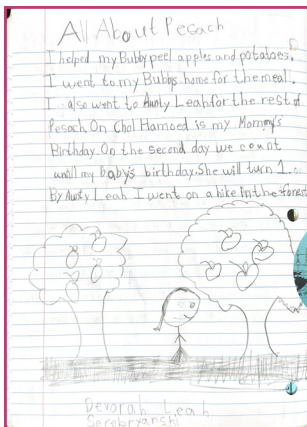 All About Pesach
I helped my Bubby peel apples and potatoes.
I went to my Bubbys home for the meal.
I also went to Aunty Leah for the rest of
Pesach. On Chol Hamoed is my Mommy's
Birthday. On the second day we count
untill my baby's birthday. She will turn 1.
By Aunty Leah I went on a hike in the forest.
Devorah Leah
Serebryanski